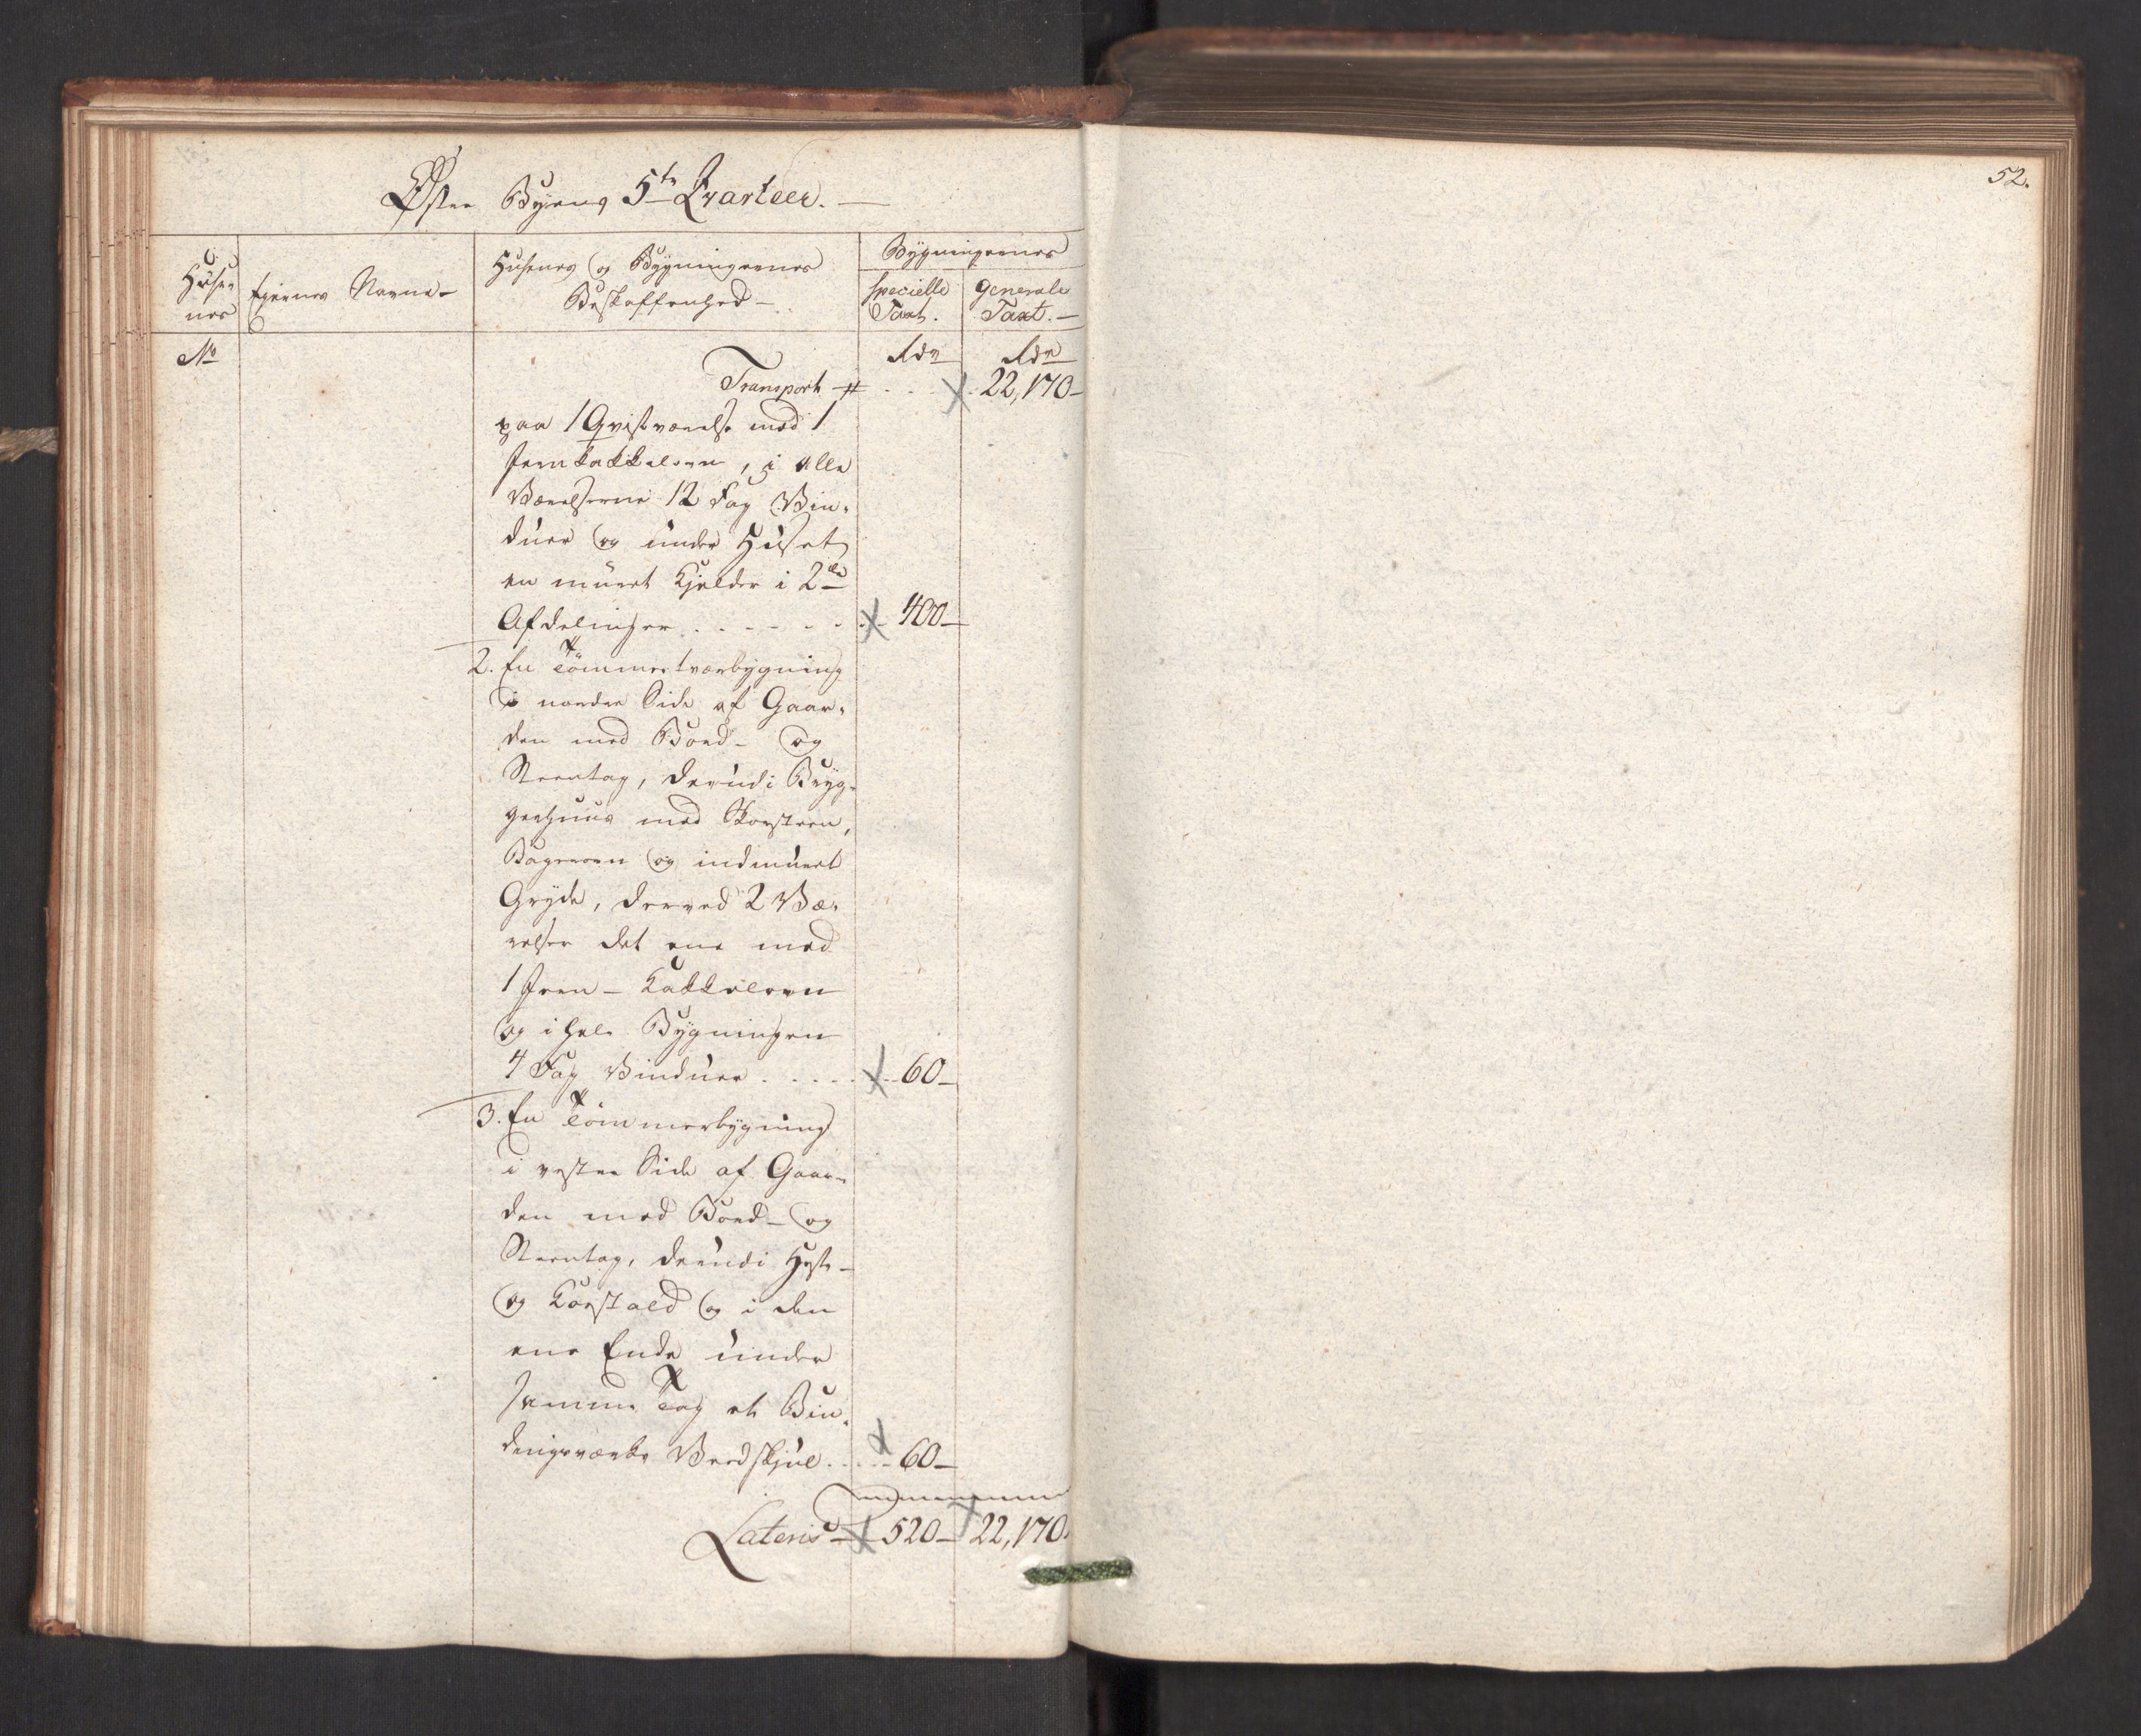 52.
Øster Byens 5te Qvarteer.
Huse-
nes
Eiernes Navne
Husenes og Bygningernes
Beskaffenhed
Bygningernes
specielle
Taxt.
Generale
Taxt.
No
Rdr
Rdr
Transport
22,170
paa 1 Qvistværelse med 1
Jernkakkelovn, i alle
Værelserne 12 Fag Vin-
duer og under Huset
en muret Kjelder i 2de
Afdelinger
400
2. En Tömmertværbygning
i norder Side af Gaar-
den med Bord- og
Steentag, derudi Bryg-
gerhuus med Skorsteen,
Bageovn og indmuret
Gryde, derved 2 Væ-
relser det ene med
1 Jern-Kakkelovn
og i hele Bygningen
4 Fag Vinduer
60
3. En Tömmerbygning
i vester Side af Gaar-
den med Bord- og
Steentag, derudi Heste-
og Köestald og i den
ene Ende under
samme Tag et Bin-
dingsværks Vedskjul
60
Lateris
520
22,170